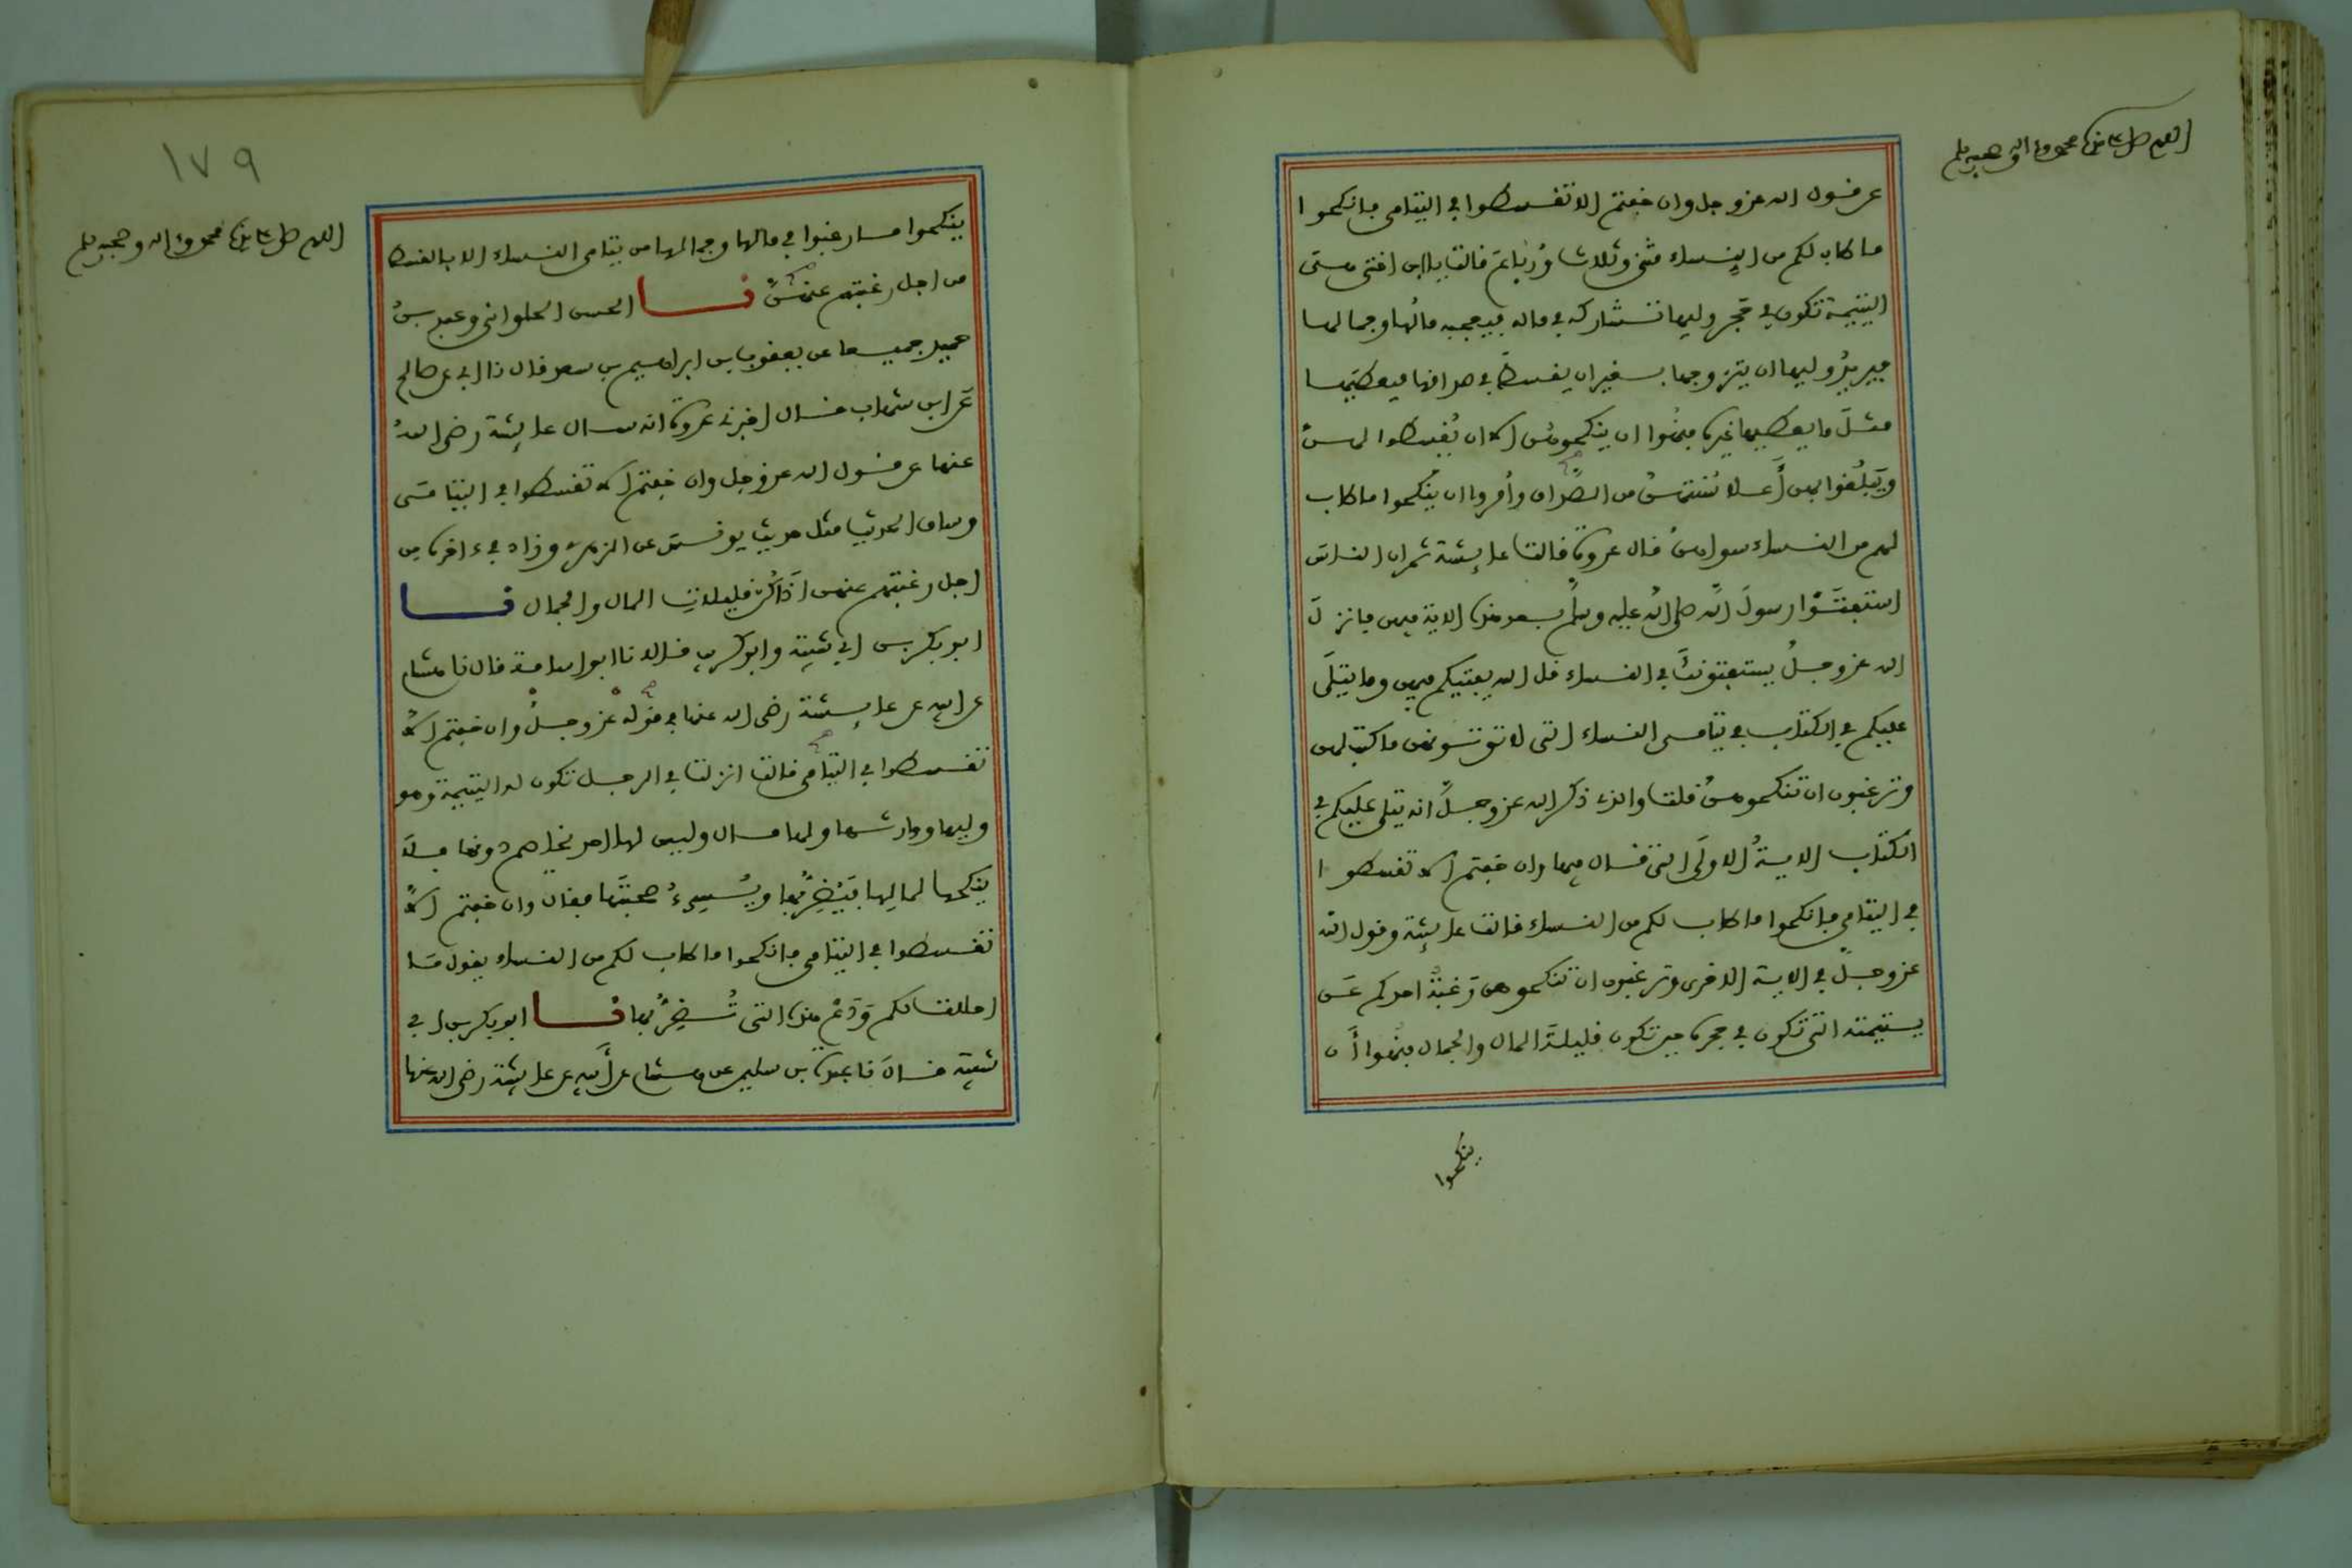 اللهم صل على سيدنا محمد واله وصحبه وسلم
عن قول الله عز وجل وان خفتم الا تقسطوا في اليتامى فانكحوا
ما طاب لكم من النساء مثنى وثلاث وَرُبَاعَ قالت يا ابن اختي هي
اليتيمة تكون في حجر وليها تشاركه في ماله فيعجبه مالُها وجمالها
فيريدُ وليها ان يتزوجها بغير ان يقسط في صداقها فيعطيَها
مثلَ ما يعطيها غيره فنُهُوا ان ينكحوهن الا ان يُقسطوا لهنَّ
ويَبلُغوا بهن أعلا سُنتهنَّ من الصَّداق وأُمروا ان ينكحوا ما طاب
لهم من النساء سواهنَّ قال عروة قالت عايشة ثم ان الناس
استفتَوْا رسولَ الله صلى الله عليه وسلم بعد هذه الاية فيهن فانزلَ
الله عز وجلَّ يستفتونك في النساء قل الله يفتيكم فيهن وما يتلَى
عليكم في الكتاب في يتامى النساء التي لا تؤتونهن ما كتب لهن
وترغبون ان تنكحوهنَّ قلت والذي ذكر الله عز وجلَّ انه يتلى عليكم في
الكتاب الايةُ الاولَى التي قال فيها وان خفتم الا تقسطوا
في اليتامى فانكحوا ما طاب لكم من النساء قالت عايشة وقول الله
عز وجلَّ في الاية الاخرى وترغبون ان تنكحوهن رَغبَةَ احدكم عن
يتيمته التي تكون في حجره حين تكون قليلةَ المال والجمال فنُهوا أَن
ينكحوا
١٧٩
اللهم صل على سيدنا محمد واله وصحبه وسلم
ينكحوا ما رغبوا في مالها وجمالها من يتامى النساء الا بالقسط
من اجل رغبتهم عنهنَّ نا الحسن الحلواني وعبد بنُ
حميد جميعا عن يعقوب بن ابراهيم بن سعد قال نا ابي عن صالح
عَن ابن شهاب قال اخبرني عروة انه سال عايشة رضي اللهُ
عنها عن قول الله عز وجل وان خفتم الا تقسطوا في اليتامَى
وساق الحديث مثل حديث يونس عن الزهري وزاد في اخره من
اجل رغبتهم عنهن اذا كُنّ قليلات المال والجمال نا
ابو بكر بن ابي شيبة وابو كريب قالا نا ابو اسامة قال نا هشام
عن ابيه عن عايشة رضي الله عنها في قوله عز وجلَّ وان خفتم الا
تقسطوا في اليتامى قالت انزلت في الرجل تكون له اليتيمة وهو
وليها ووارثها ولها مال وليس لها احد يخاصم دونها فلا
ينكحها لمالها فيَضُرُّ بها ويُسيءُ صحبتَها فقال وان خفتم الا
تقسطوا في اليتامى فانكحوا ما طاب لكم من النساء يقول مَا
احللت لكم وَدَعْ هذه التي تُضِرُّ بها نا ابو بكر بن ابي
شيبة قالَ نا عبدة بن سليمن عن هشام عن أبيه عن عايشة رضي الله عنها